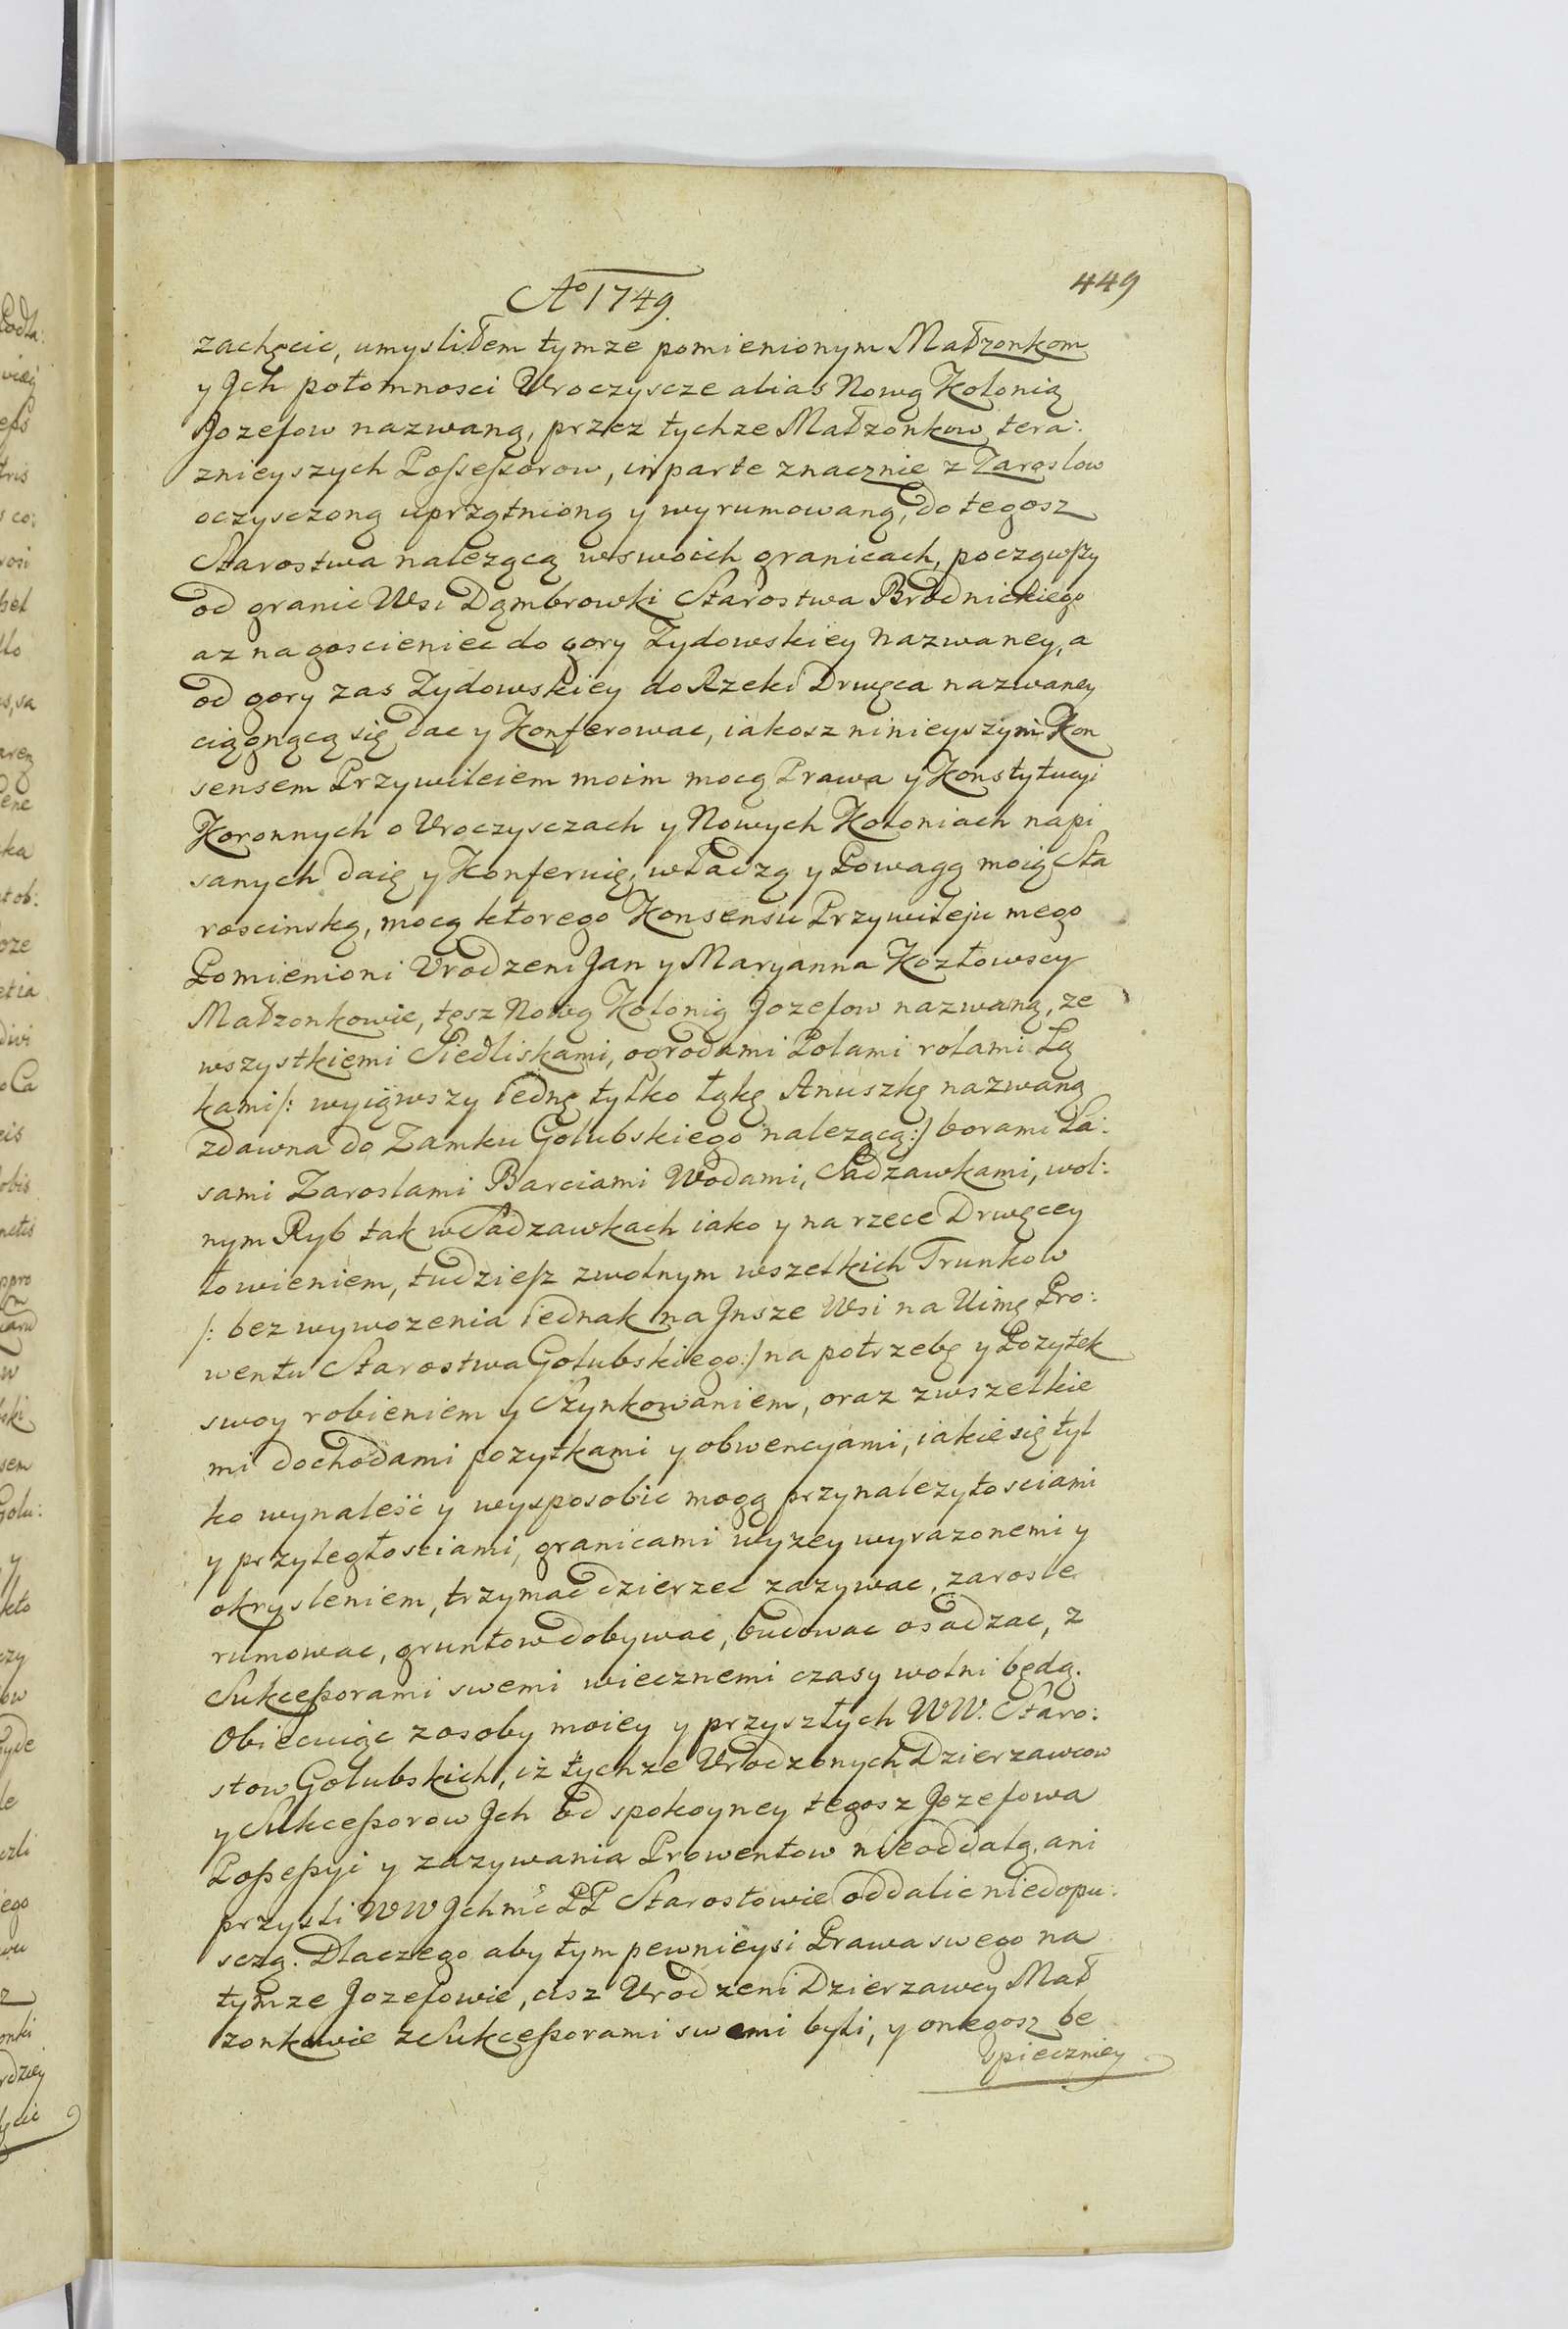 Aº 1749.
449
zachęcic, umysliłem tymze pomienionym Małzonkom
y Jch potomnosci Vroczyscze alias Nową Kolonią
Jozefow nazwaną, przez tychze Małzonkow tera:
znieyszych Possessorow, in parte znacznie z Zaroslow
oczysczoną uprzątnioną y wyrumowaną, do tegosz
Starostwa nalezącą w swoich granicach, począwszy
od granic Wsi Dąmbrowki Starostwa Brodnickiego
az na goscieniec do gory Zydowskiey nazwaney, a
od gory zas Zydowskiey do Rzeki Drwęca nazwaney
ciągnącą się dac y Konferowac, iakosz ninieyszym Kon
sensem Przywileiem moim mocą Prawa y Konstytucyi
Koronnych o Vroczysczach y Nowych Koloniach napi
sanych daię y Konferuię, władzą y Powagą moią Sta
roscinską, mocą ktorego Konsensu Przywileju mego
Pomienioni Vrodzeni Jan y Maryanna Kozłowscy
Małzonkowie, tęsz Nową Kolonią Jozefow nazwaną, ze
wszystkiemi Siedliskami, ogrodami Polami rolami Łą
kami /: wyiąwszy iednę tylko łąkę Anuszkę nazwaną
zdawna do Zamku Golubskiego nalezącą :/ borami La:
sami Zaroslami Barciami Wodami, Sadzawkami, wol:
nym Ryb tak w Sadzawkach iako y na rzece Drwęcey
łowieniem, tudziesz zwolnym wszelkich Trunkow
/: bez wywozenia iednak na Jnsze Wsi na Uimę Pro:
wentu Starostwa Golubskiego :/ na potrzebę y Pozytek
swoy robieniem y Szynkowaniem, oraz zwszelkie
mi dochodami pozytkami y obwencyami, iakie się tyl
ko wynaleść y wysposobic mogą przynalezytosciami
y przyległosciami, granicami wyzey wyrazonemi y
okrysleniem, trzymac dzierzec zazywac, zarosle
rumowac, gruntow dobywac, budowac osadzac, z
Sukcessorami swemi wiecznemi czasy wolni będą.
Obiecuiąc zosoby moiey y przyszłych WW. Staro:
stow Golubskich, iż tychze Vrodzonych Dzierzawcow
y Sukcessorow Jch od spokoyney tegosz Jozefowa
Possessyi y zazywania Prowentow nieoddalą, ani
przysli WW Jchmć PP Starostowie oddalic niedopu:
sczą. Dlaczego aby tym pewnieysi Prawa swego na
tymze Jozefowie, cisz Vrodzeni Dzierzawcy Mał
zonkowie z Sukcessorami swemi byli, y onegosz be
spieczniey